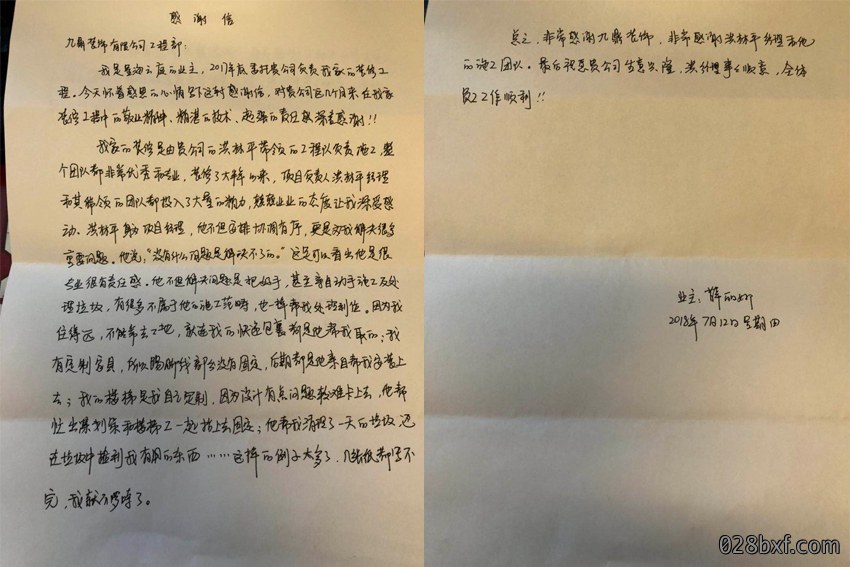 感谢信
九鼎装饰有限公司工程部:
我是星迎云庭的业主，2017年底委托贵公司负责我家的装修工
程。今天怀着感恩的心情写下这封感谢信，对贵公司这几个月来在我家
装修工程中的敬业精神、精湛的技术、超强的责任致深表感谢!!
我家的装修是由贵公司的洪林平带领的工程队负责施工，整
个团队都非常优秀和专业，装修了大半年以来，项目负责人洪林平经理
和其带领的团队都投入了大量的精力，兢兢业业的态度让我深受感
动。洪林平身为项目经理，他不但安排协调有序，更是为我解决很多
重要问题。他说:“没有什么问题是解决不了的。”这足可以看出他是很
专业很有责任感。他不但解决问题是把好手，甚至亲自动手施工及处
理垃圾，有很多不属于他的施工范畴，他一样帮我处理到位。因为我
住得远，不能常去工地，就连我的快递包裹都是他帮我取的；我
有定制家具，所以踢脚线部分没有固定，后期都是他亲自帮我安装上
去；我的楼梯是我自己定制，因为设计有点问题较难卡上去，他帮
忙出谋划策和楼梯工一起抬上去固定；他帮我清理了一天的垃圾，还
在垃圾中捡到我有用的东西……这样的例子太多了，几张纸都写不
完，我就不啰嗦了。
总之，非常感谢九鼎装饰，非常感谢洪林平经理和他
的施工团队。最后祝愿贵公司生意兴隆，洪经理事事顺意，全体
员工工作顺利!!
业主:薛丽娜
2018年7月12日星期四
028bxf.com